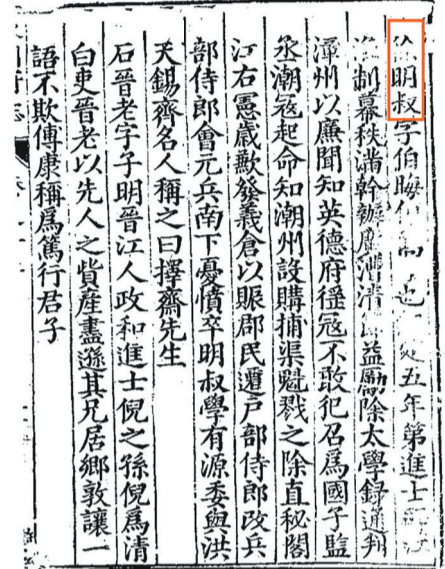 明叔字伯晦
五年第進士
制幕秩滿幹辦 益勵除太學録通判
漳州以廉聞知英德府徭冦不敢犯召爲國子監
丞潮冦起命知潮州設購捕渠魁戮之除直秘閣
江右憲歲歉發義倉以賑郡民遷戸部侍郎改兵
部侍郎會元兵南下憂憤卒明叔學有源委與洪
天錫齊名人稱之曰擇齋先生
石晉老字子明晉江人政和進士倪之孫倪爲清
白吏晉老以先人之貲産盡遜其兄居鄉敦讓一
語不欺傅康稱爲篤行君子